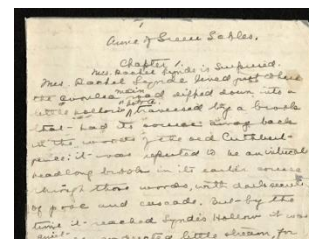 Anne of Green Gables.
Chapter I.
Mrs. Rachel Lynde is Surprised.
Mrs. Rachel Lynde lived just where
the Avonlea main road dipped down into a
little hollow, traversed by a brook
that had its source away back
in the woods of the old Cuthbert
place; it was reputed to be an intricate,
headlong brook in its earlier course
through those woods, with dark secrets
of pool and cascade. But by the
time it reached Lynde's Hollow it was
quiet
conducted little stream, for